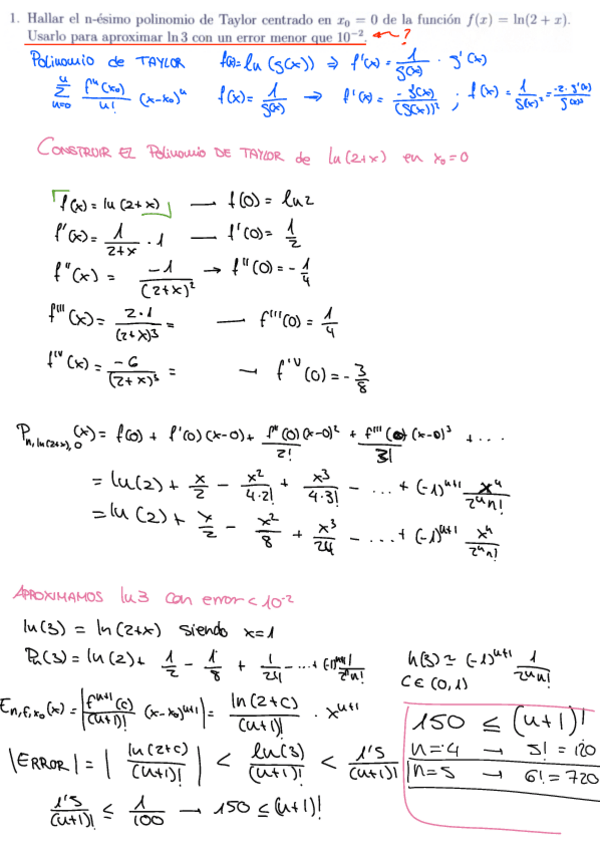 1. Hallar el n-ésimo polinomio de Taylor centrado en x₀ = 0 de la función f(x) = ln(2 + x).
Usarlo para aproximar ln 3 con un error menor que 10⁻². ← ?
Polinomio de TAYLOR f(x)= ln (g(x)) ⇒ f'(x)= 1/g(x) · g'(x)
n Σ n=0 fⁿ(x₀)/n! (x-x₀)ⁿ f(x)= 1/g(x) → f'(x)= -g'(x)/(g(x))² ; f(x)= 1/g(x)² = -2·g'(x)/g(x)³
CONSTRUIR EL Polinomio DE TAYLOR de ln(2+x) en x₀=0
f(x)= ln(2+x) — f(0)= ln2
f'(x)= 1/(2+x) · 1 — f'(0)= 1/2
f''(x) = -1/(2+x)² → f''(0)= - 1/4
f'''(x)= 2·1/(2+x)³ = — f'''(0)= 1/4
f'ᵛ(x)= -6/(2+x)⁵ = — f'ᵛ(0)= - 3/8
Pₙ,ln(2+x),₀(x)= f(0) + f'(0)(x-0)+ f''(0)(x-0)²/2! + f'''(0)(x-0)³/3! + ...
= ln(2)+ x/2 - x²/4·2! + x³/4·3! - ... + (-1)ⁿ⁺¹ xⁿ/2ⁿn!
= ln(2)+ x/2 - x²/8 + x³/24 - ...+ (-1)ⁿ⁺¹ xⁿ/2ⁿn!
APROXIMAMOS ln3 con error < 10⁻²
ln(3) = ln(2+x) siendo x=1
Pₙ(3)= ln(2)+ 1/2 - 1/8 + 1/24 - ...+ (-1)ⁿ⁺¹ 1/2ⁿn!
ln(3) ≃ (-1)ⁿ⁺¹ 1/2ⁿn!
c∈(0,1)
Eₙ,f,x₀(x)= |fⁿ⁺¹(c)/(n+1)! (x-x₀)ⁿ⁺¹| = ln(2+c)/(n+1)! · xⁿ⁺¹
|ERROR| = |ln(2+c)/(n+1)!| < ln(3)/(n+1)! < 1'5/(n+1)!
1'5/(n+1)! ≤ 1/100 → 150 ≤ (n+1)!
150 ≤ (n+1)!
n=4 → 5! = 120
n=5 → 6! = 720